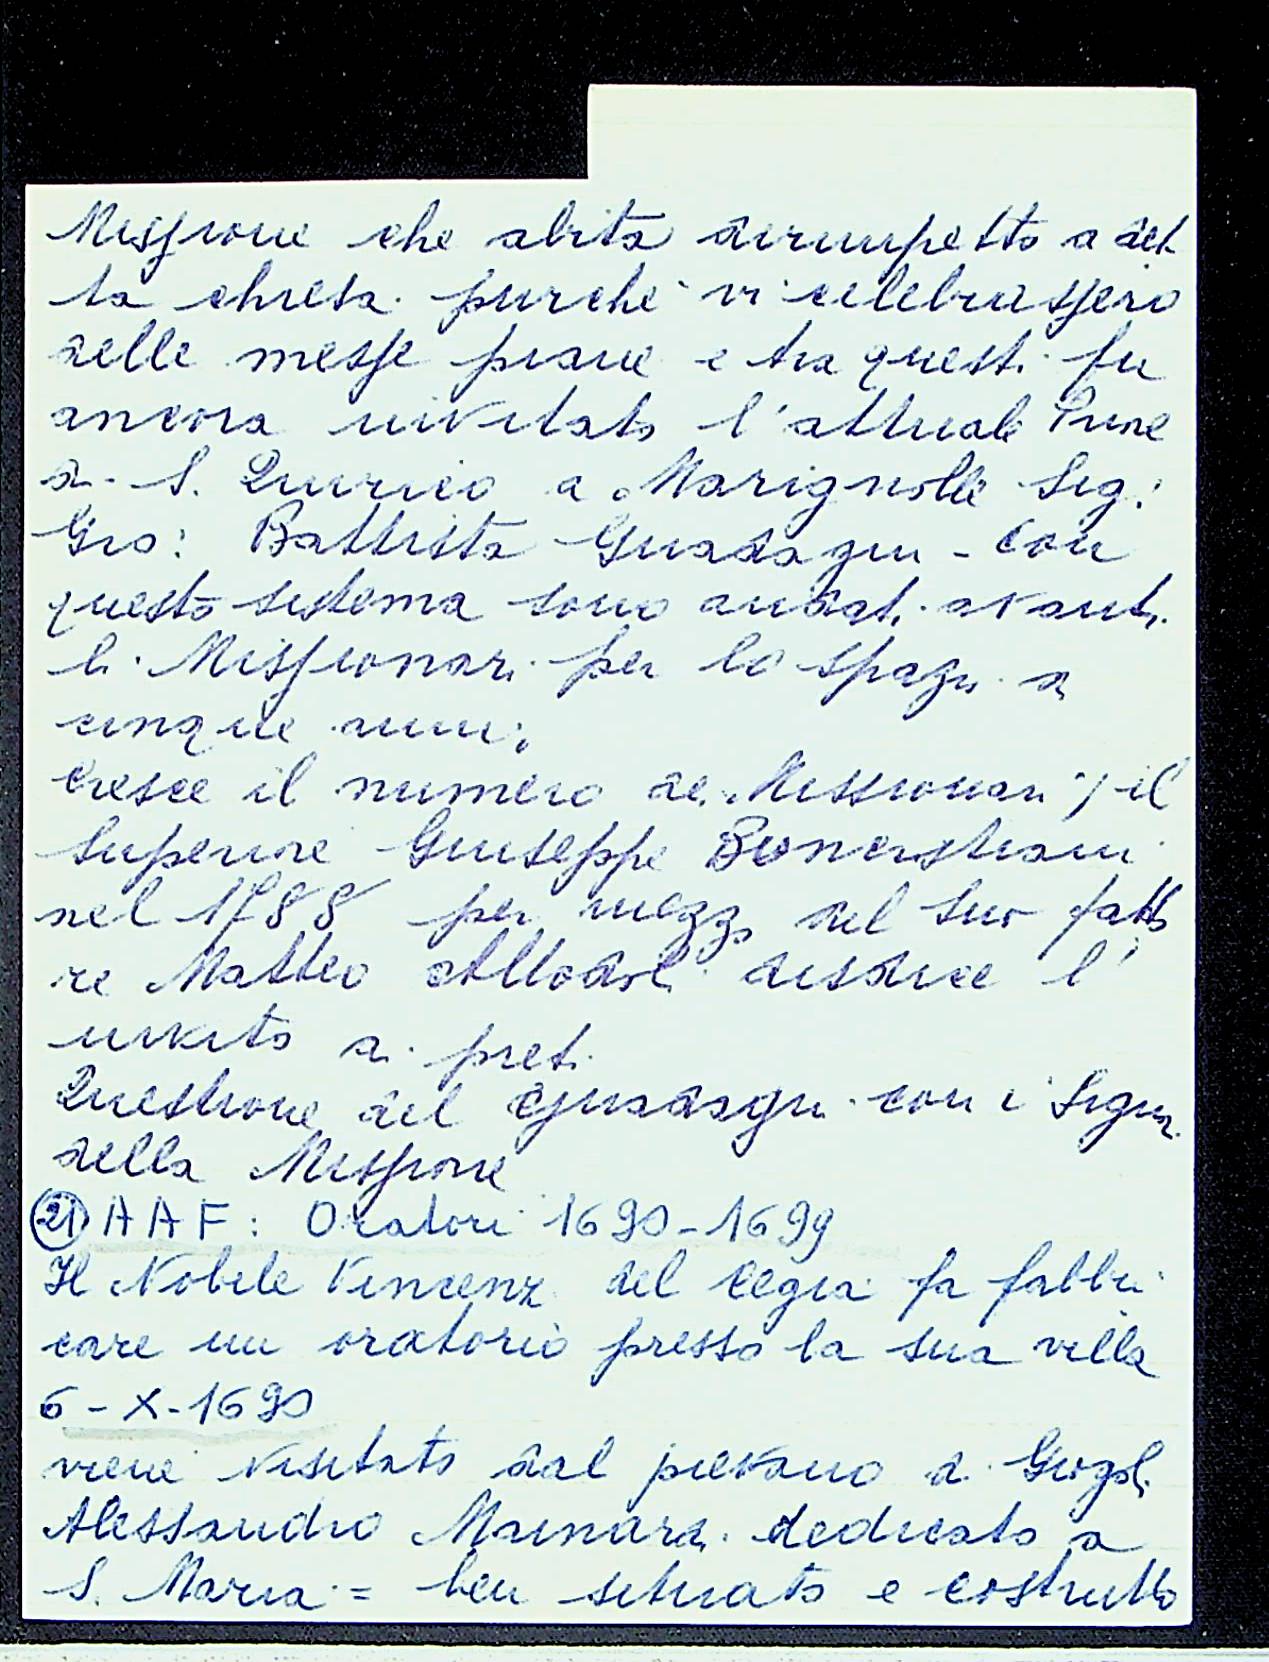 Missione che abita dirimpetto a det-
ta chiesa purche vi celebrassero
delle messe piane e tra questi fu
ancora invitato l'attuale Priore
di S. Quirico a Marignolle Sig:
Gio: Battista Guadagni - con
questo sistema sono andati avanti
li Missionari per lo spazio di
cinque anni;
Cresce il numero dei Missionari; il
Superiore Giuseppe
nel 1788 per mezzo del suo fatto
re Matteo disdice l'
invito ai preti.
Questione del Guadagni con i Sigri
della Missione
21) AAF: Oratori 1690-1699
Il Nobile Vincenzo del Cegia fa fabbri
care un oratorio presso la sua villa
6-X-1690
viene visitato dal pievano di Giogoli
Alessandro dedicato a
S. Maria = ben situato e costrutto